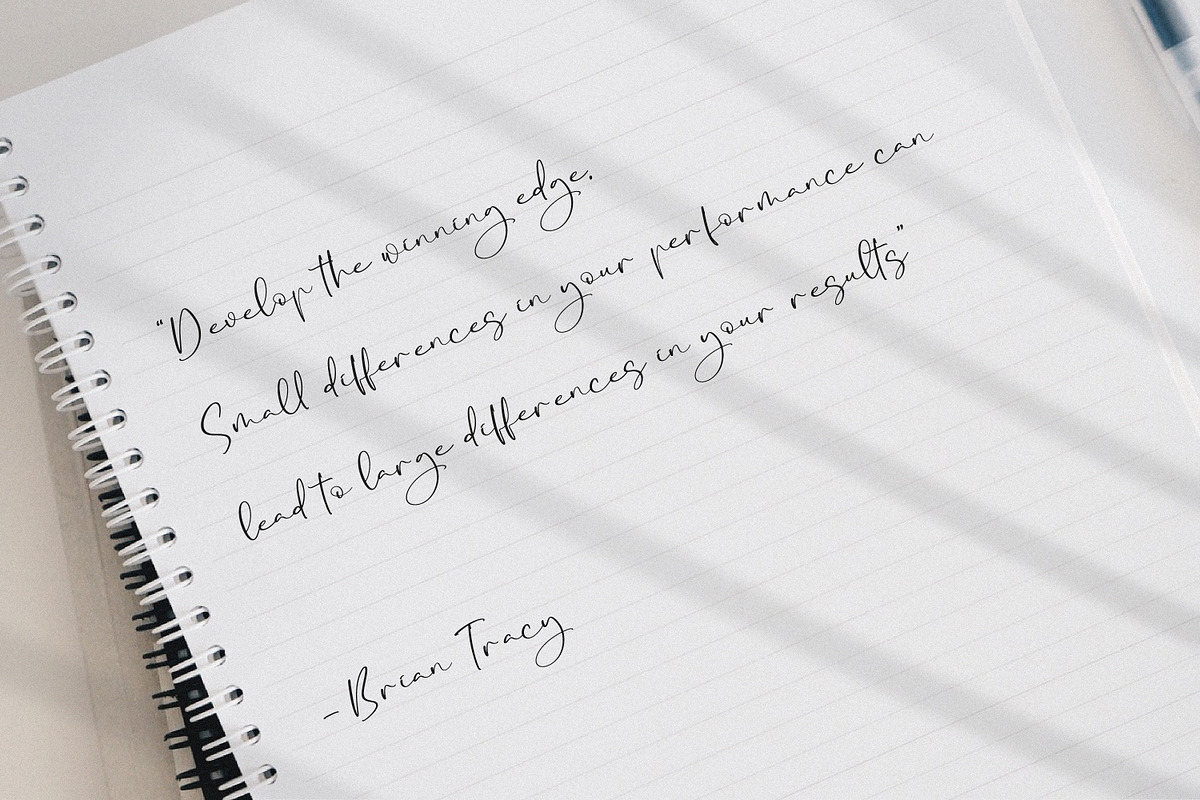 “Develop the winning edge.
Small differences in your performance can
lead to large differences in your results”
-Brian Tracy